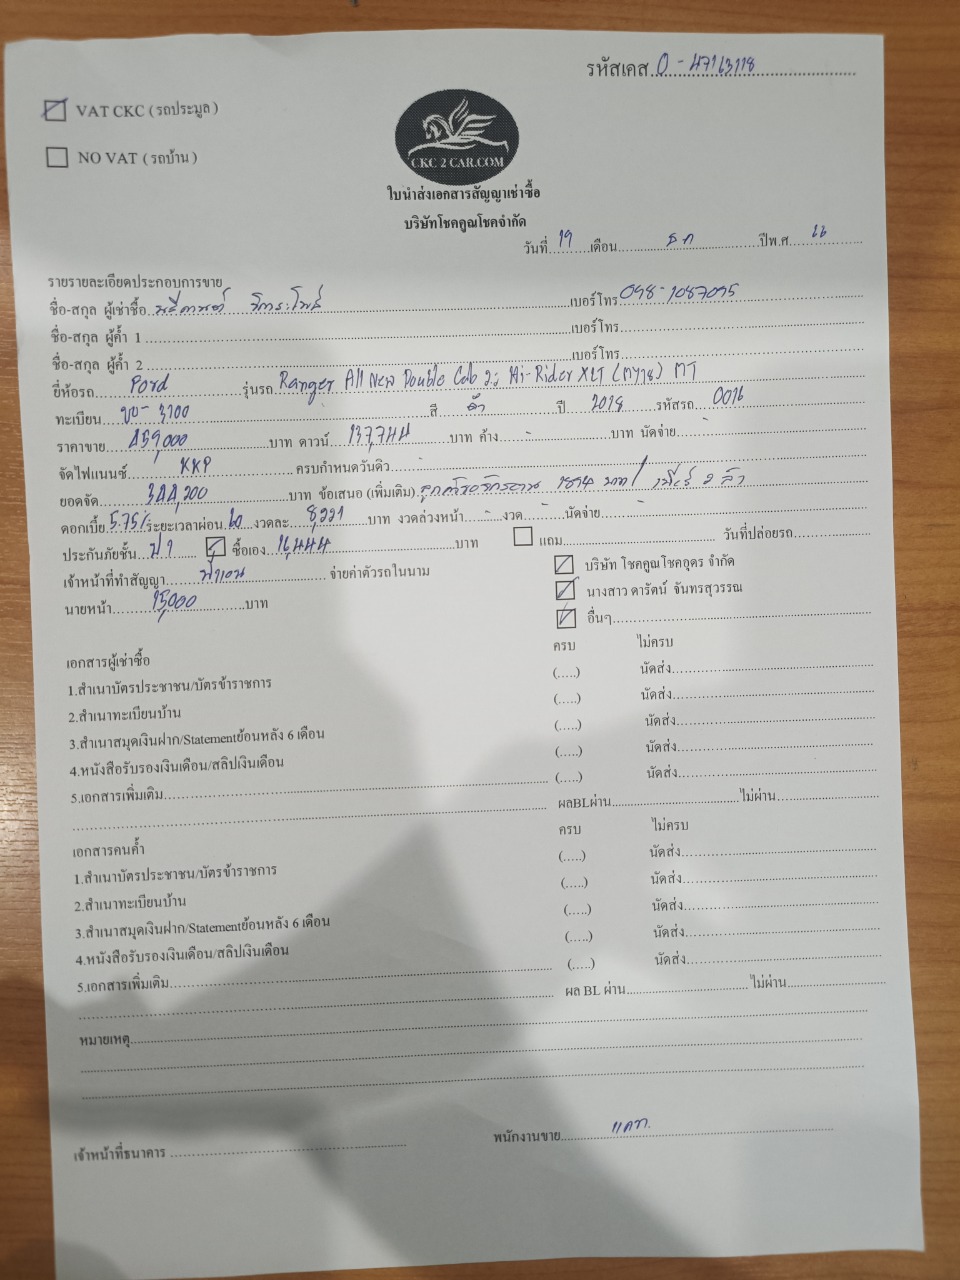 รหัสเคส
VAT CKC ( รถประมูล )
NO VAT ( รถบ้าน )
CKC 2 CAR.COM
ใบนำส่งเอกสารสัญญาเช่าซื้อ
บริษัทโชคคูณโชคจำกัด
วันที่ 19 เดือน ธ.ค ปีพ.ศ.
รายรายละเอียดประกอบการขาย
ชื่อ-สกุล ผู้เช่าซื้อ เบอร์โทร 098-1087095
ชื่อ-สกุล ผู้ค้ำ 1 เบอร์โทร
ชื่อ-สกุล ผู้ค้ำ 2 เบอร์โทร
ยี่ห้อรถ Ford รุ่นรถ Ranger All New Double Cab 2.2 Hi-Rider XLT (MY18) MT
ทะเบียน 3700 สี ดำ ปี 2018 รหัสรถ 0016
ราคาขาย 459,000 บาท ดาวน์ 137,744 บาท ค้าง - บาท นัดจ่าย -
จัดไฟแนนซ์ KKP ครบกำหนดวันคิว -
ยอดจัด 344,200 บาท ข้อเสนอ (เพิ่มเติม)
ดอกเบี้ย 5.75% ระยะเวลาผ่อน 60 งวดละ 8,221 บาท งวดล่วงหน้า - งวด - นัดจ่าย -
ประกันภัยชั้น ป1 ซื้อเอง 16,444 บาท แถม วันที่ปล่อยรถ
เจ้าหน้าที่ทำสัญญา จ่ายค่าตัวรถในนาม บริษัท โชคคูณโชคอุดร จำกัด
นายหน้า 15,000 บาท นางสาว ดารัตน์ จันทรสุวรรณ
อื่นๆ
เอกสารผู้เช่าซื้อ ครบ ไม่ครบ
1.สำเนาบัตรประชาชน/บัตรข้าราชการ (.....) นัดส่ง
2.สำเนาทะเบียนบ้าน (.....) นัดส่ง
3.สำเนาสมุดเงินฝาก/Statementย้อนหลัง 6 เดือน (.....) นัดส่ง
4.หนังสือรับรองเงินเดือน/สลิปเงินเดือน (.....) นัดส่ง
5.เอกสารเพิ่มเติม (.....) นัดส่ง
ผลBLผ่าน ไม่ผ่าน
เอกสารคนค้ำ ครบ ไม่ครบ
1.สำเนาบัตรประชาชน/บัตรข้าราชการ (.....) นัดส่ง
2.สำเนาทะเบียนบ้าน (.....) นัดส่ง
3.สำเนาสมุดเงินฝาก/Statementย้อนหลัง 6 เดือน (.....) นัดส่ง
4.หนังสือรับรองเงินเดือน/สลิปเงินเดือน (.....) นัดส่ง
5.เอกสารเพิ่มเติม (.....) นัดส่ง
ผล BL ผ่าน ไม่ผ่าน
หมายเหตุ
เจ้าหน้าที่ธนาคาร พนักงานขาย